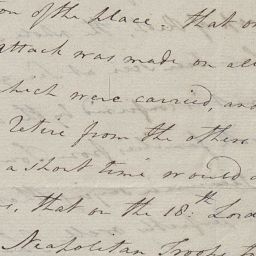 on of the place that on
attack was made on all
which were carried, and
retire from the others
a short time would
, that on the 18:th Lord
Neapolitan Troops